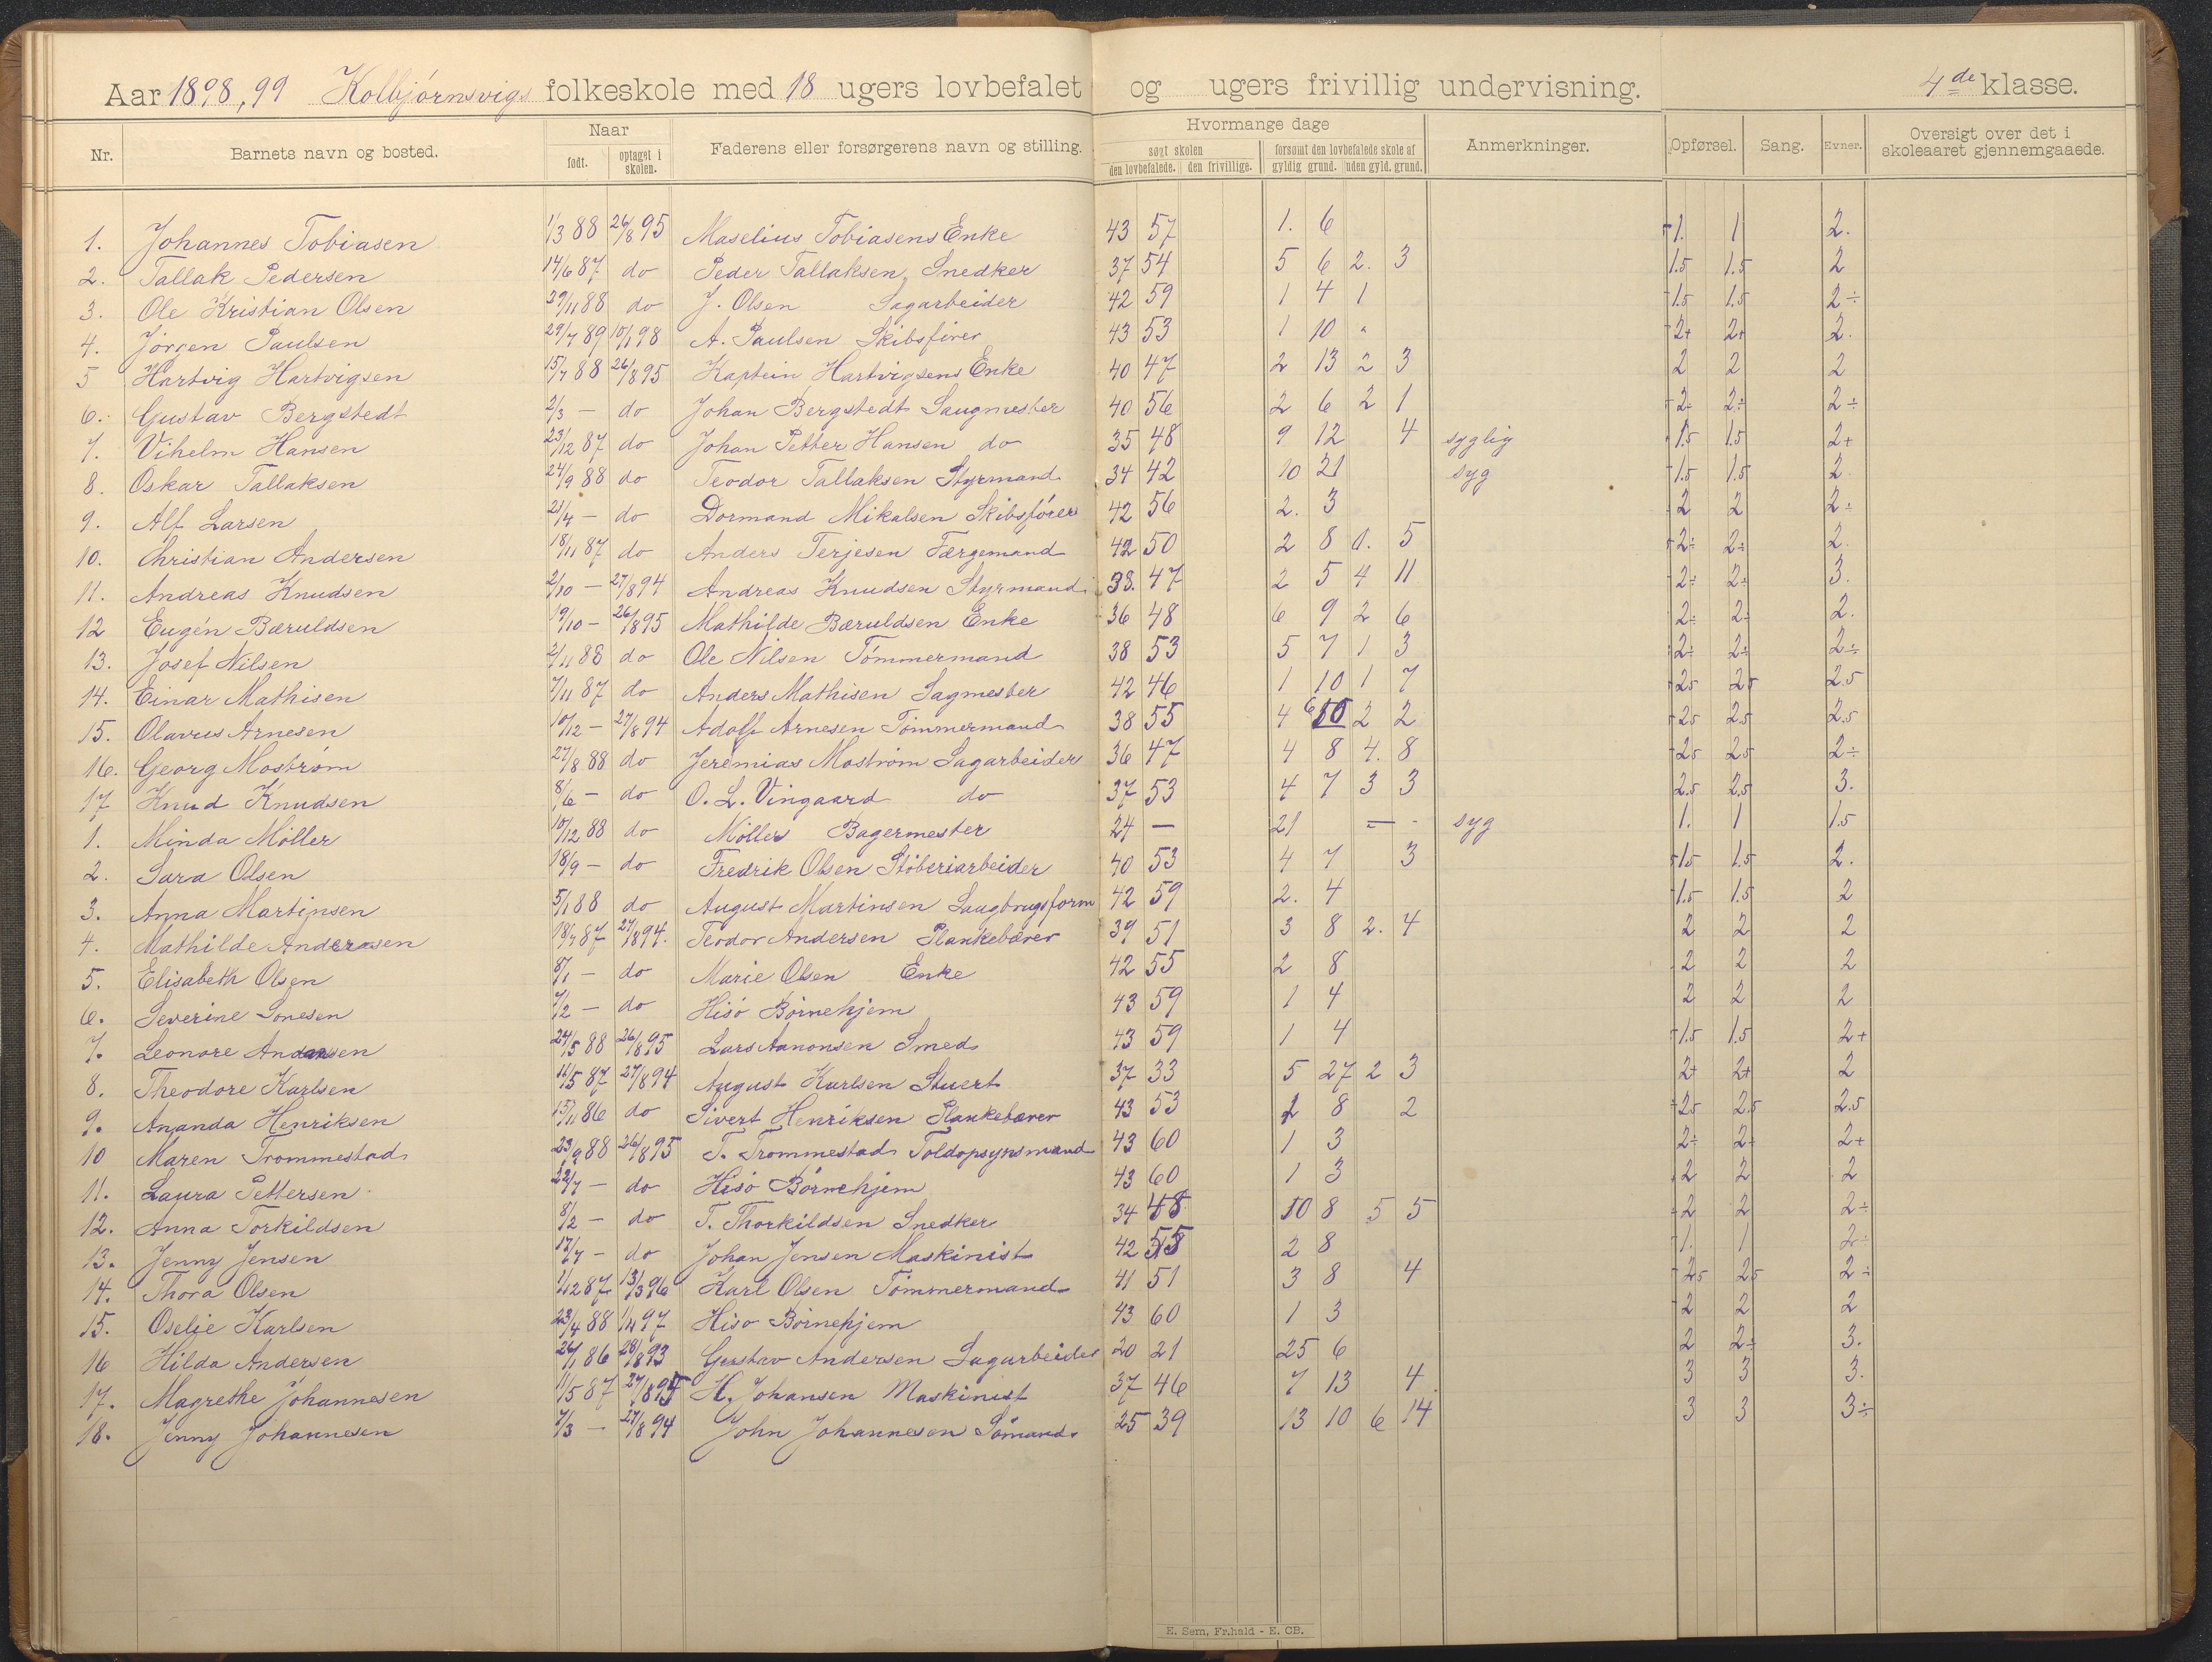 Aar 1898,99 Kolbjørnsvigs folkeskole med 18 ugers lovbefalet og ugers frivillig undervisning. 4de klasse.
Nr. Barnets navn og bosted. Naar født. optaget i skolen. Faderens eller forsørgerens navn og stilling. Hvormange dage søgt skolen den lovbefalede. den frivillige. forsømt den lovbefalede skole af gyldig grund. uden gyld. grund. Anmerkninger. Opførsel. Sang. Evner. Oversigt over det i skoleaaret gjennemgaaede.
1. Johannes Tobiasen 1/3 88 26/8 95 Maselius Tobiasens Enke 43 57 1. 6 1. 1 2.
2. Tallak Pedersen 14/6 87 do Peder Tallaksen Snedker 37 54 5 6 2. 3 1.5 1.5 2
3. Ole Kristian Olsen 29/11 88 do J. Olsen Sagarbeider 42 59 1 4 1 1.5 1.5 2÷
4. Jørgen Paulsen 29/7 89 10/1 98 A. Paulsen Skibsfører 43 53 1 10 " 2+ 2+ 2.
5 Hartvig Hartvigsen 15/7 88 26/8 95 Kaptein Hartvigsens Enke 40 47 2 13 2 3 2 2 2
6. Gustav Bergstedt 2/3 — do Johan Bergstedt Saugmester 40 56 2 6 2 1 2÷ 2÷ 2÷
7. Vihelm Hansen 23/12 87 do Johan Petter Hansen do 35 48 9 12 4 syglig 1.5 1.5 2+
8. Oskar Tallaksen 24/9 88 do Teodor Tallaksen Styrmand 34 42 10 21 syg 1.5 1.5 2
9. Alf Larsen 21/4 — do Dormand Mikalsen Skibsfører 42 56 2. 3 2 2 2÷
10. Christian Andersen 18/11 87 do Anders Terjesen Færgemand 42 50 2 8 0. 5 2÷ 2÷ 2.
11. Andreas Knudsen 2/10 — 27/8 94 Andreas Knudsen Styrmand 38. 47 2 5 4 11 2÷ 2÷ 3.
12 Eugén Bæruldsen 19/10 — 26/8 95 Mathilde Bæruldsen Enke 36 48 6 9 2 6 2÷ 2÷ 2.
13. Josef Nilsen 2/11 88 do Ole Nilsen Tømmermand 38 53 5 7 1 3 2÷ 2÷ 2÷
14. Einar Mathisen 7/11 87 do Anders Mathisen Sagmester 42 46 1 10 1 7 25 25 2.5
15. Olavus Arnesen 10/12 — 27/8 94 Adolf Arnesen Tømmermand 38 55 4 2 2 25 2.5 2.5
16. Georg Mostrøm 27/8 88 do Jeremias Mostrøm Sagarbeider 36 47 4 8 4. 8 25 25 2÷
17 Knud Knudsen 8/6 — do O. L. Vingaard do 37 53 4 7 3 3 2.5 2.5 3.
1. Minda Møller 10/12 88 do Møller Bagermester 24 — 21 — - syg 1. 1 1.5
2. Sara Olsen 18/9 — do Fredrik Olsen Støberiarbeider 40 53 4 7 3 1.5 1.5 2.
3. Anna Martinsen 5/1 88 do August Martinsen Saugbrugsform 42 59 2. 4 1.5 1.5 2
4. Mathilde Andersen 18/7 87 27/8 94. Teodor Andersen Plankebærer 39 51 3 8 2. 4 2 2 2
5. Elisabeth Olsen 8/1 — do Marie Olsen Enke 42 55 2 8 2 2 2
6. Severine Sønesen 7/2 — do Hisø Børnehjem 43 59 1 4 2 2 2
7. Leonore Andersen 24/5 88 26/8 95 Lars Aanonsen Smed 43 59 1 4 1.5 1.5 2+
8. Theodore Karlsen 11/5 87 27/8 94 August Karlsen Stuert 37 33 5 27 2 3 2+ 2+ 2
9. Ananda Henriksen 15/11 86 do Sivert Henriksen Plankebærer 43 53 2 8 2 25 2.5 2.5
10 Maren Trommestad 23/9 88 26/8 95 T. Trommestad Toldopsynsmand 43 60 1 3 2÷ 2÷ 2+
11. Laura Pettersen 22/7 — do Hisø Børnehjem 43 60 1 3 2 2 2
12. Anna Torkildsen 8/2 — do T. Thorkildsen Snedker 34 48 10 8 5 5 2 2 2÷
13. Jenny Jensen 17/7 — do Johan Jensen Maskinist 42 55 2 8 1. 1 2÷
14. Thora Olsen 1/12 87 13/3 96 Karl Olsen Tømmermand 41 51 3 8 4 25 25 2÷
15. Oselie Karlsen 23/4 88 1/4 97 Hisø Børnehjem 43 60 1 3 2 2 2
16 Hilda Andersen 26/1 86 28/8 93 Gustav Andersen Sagarbeider 20 21 25 6 2 2÷ 3.
17. Magrethe Johannesen 11/5 87 27/8 95 H. Johansen Maskinist 37 46 7 13 4 3 3 3.
18. Jenny Johannesen 7/3 — 27/8 94 John Johannesen Sømand 25 39 13 10 6 14 3 3 3÷
E. Sem, Fr.hald - E. CB.